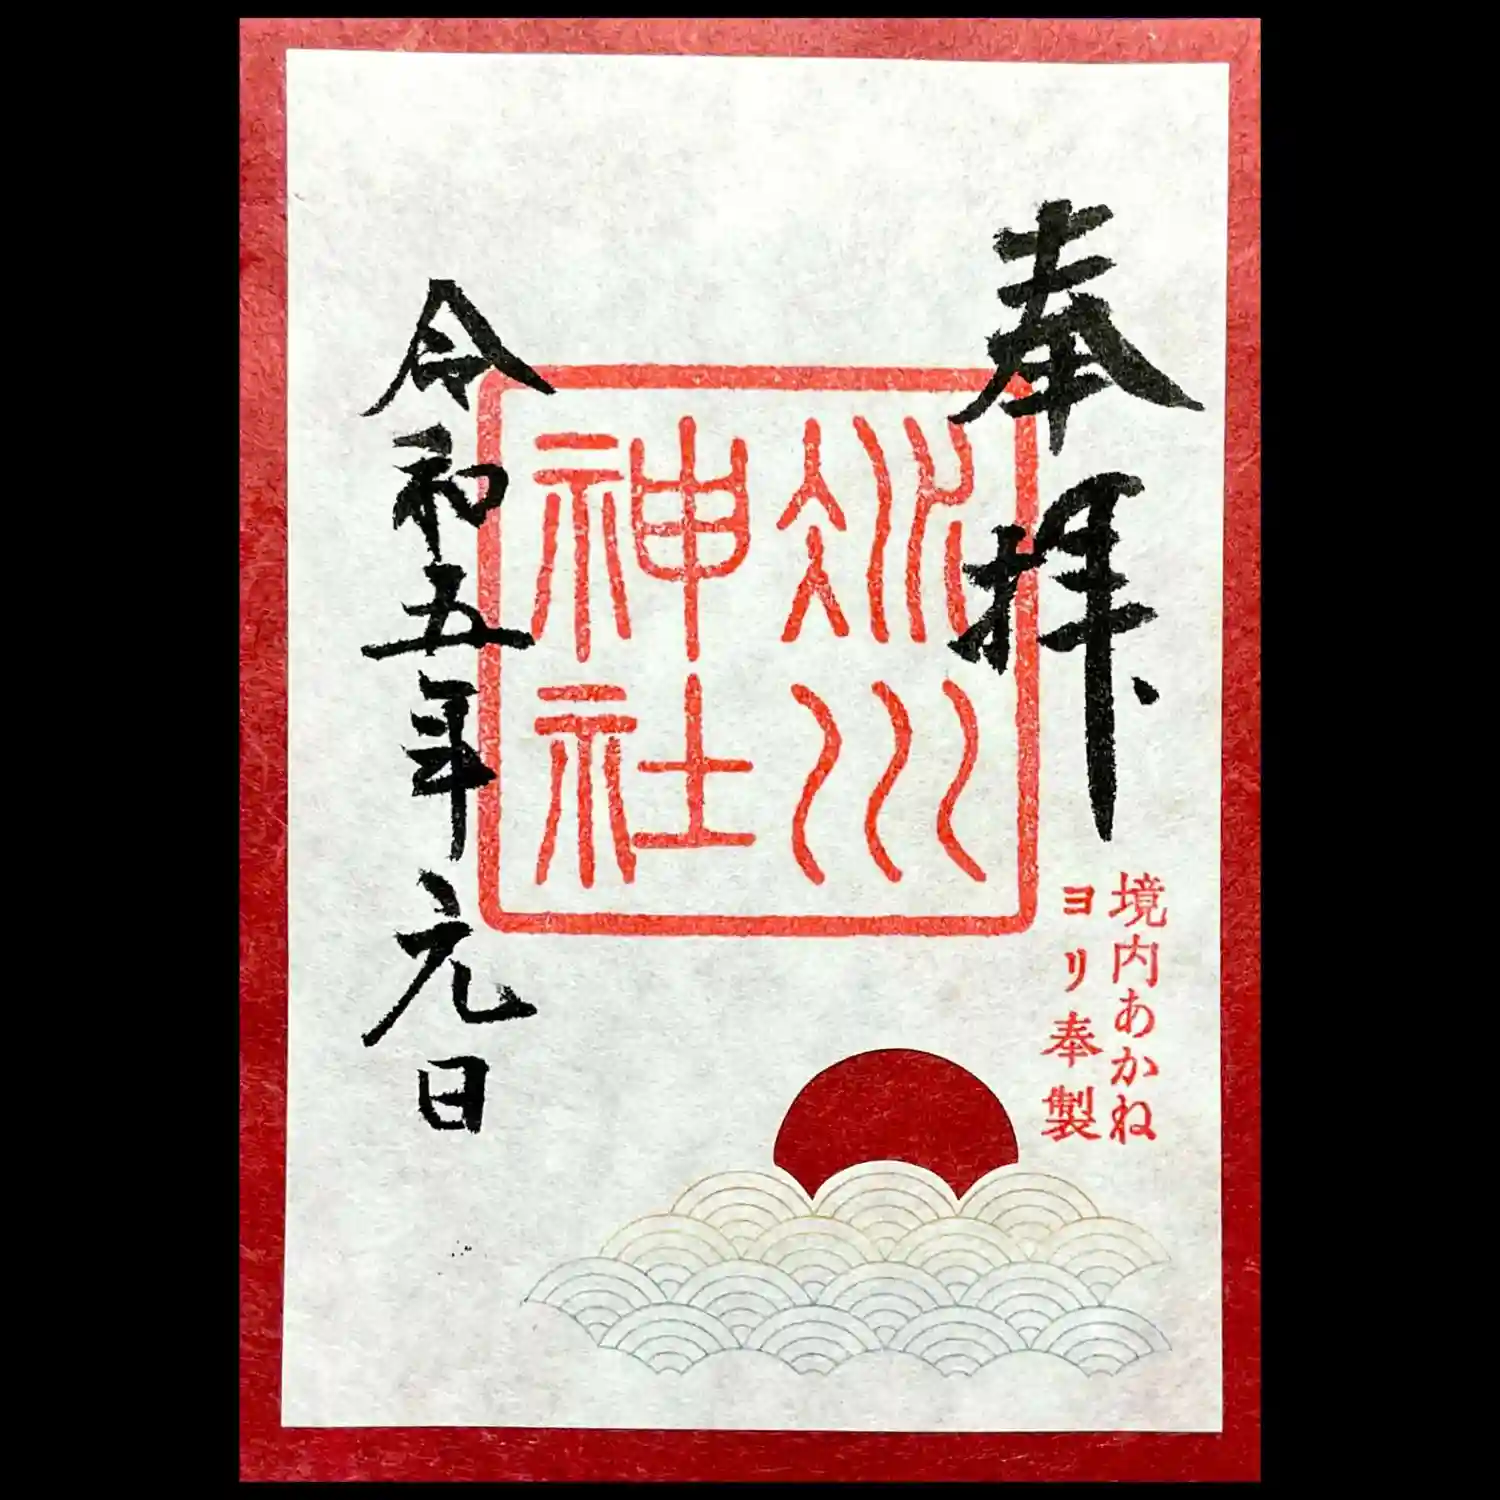 奉拝
境内あかね
ヨリ奉製
冰川
神社
令和五年元日